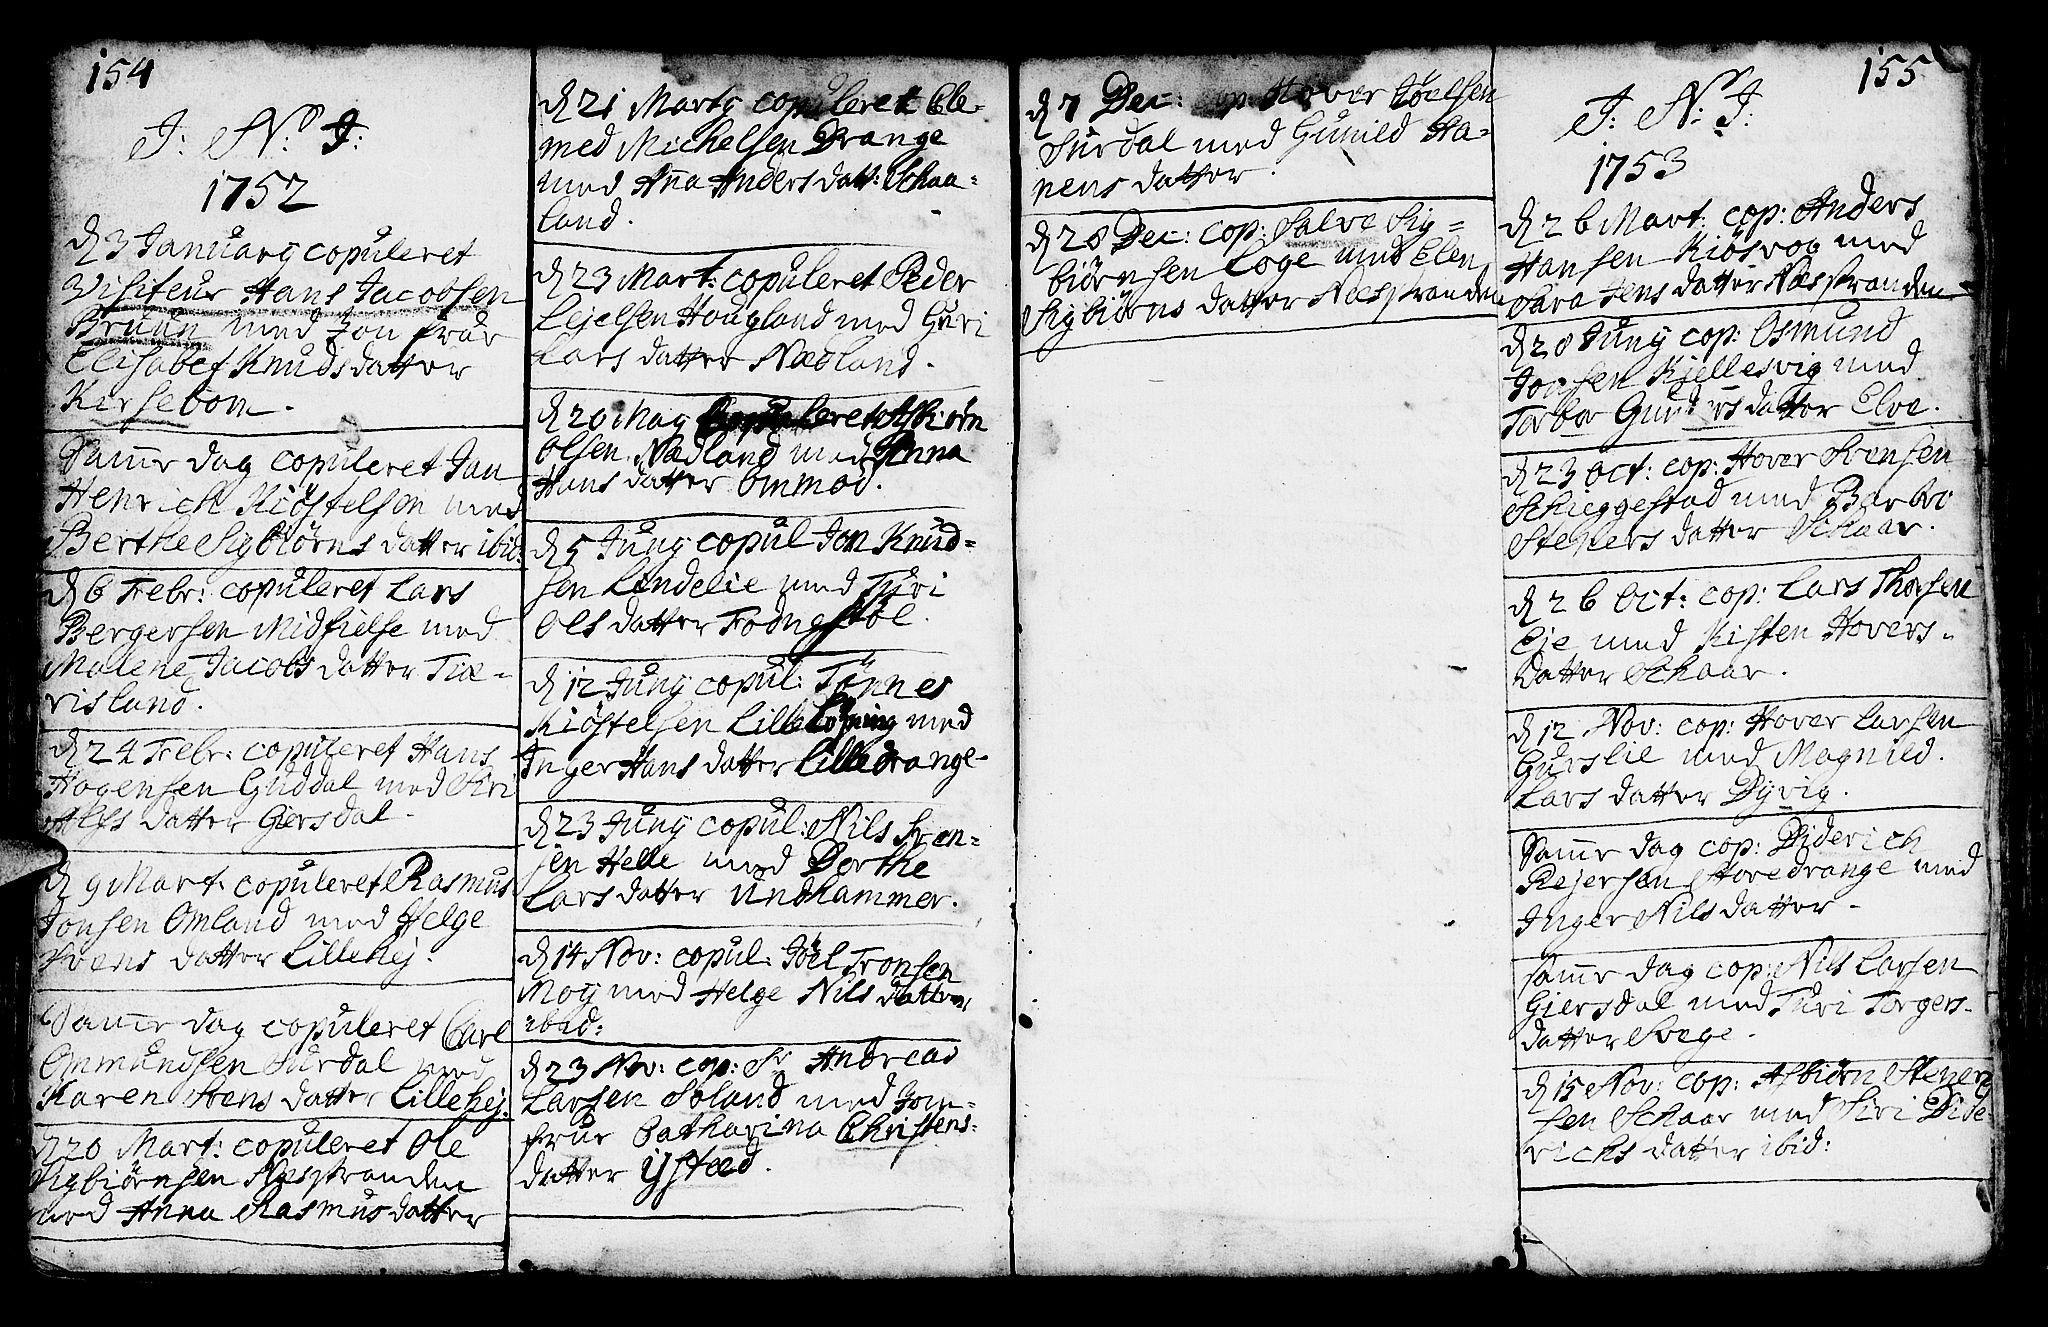 154
J: N: J:
1752
d 3 Januarij copuleret
Visiteur Hans Jacobsen
Bruun med Jomfrue
Elisabet Knudsdatter
Kirsebom.
Samme dag copuleret Jan
Henrich Kiöstelsen med
Berthe Sigbiörns datter ibid:
d 6 Febr: copuleret Lars
Bergersen Midfielse med
Malene Jacobs datter Tiæ-
risland.
d 24 Febr: copuleret Hans
Hogensen Guddal med Siri
datter Giersdal.
d 9 Mart: copuleret Rasmus
Jonsen Omland med Helge
Svens datter Lillehej.
Samme dag copuleret Carl
Onmundsen Surdal med
Karen Stens datter Lillehej.
d 20 Mart: copuleret Ole
Sigbiörnsen Næsstranden
med Anna Rasmus datter
d 21 Martij copuleret Cle-
med Michelsen Drange
med Anna Anders datt: Schaa-
land.
d 23 Mart: copuleret Peder
Lejelsen Hougland med Guri
Lars datter Nædland.
d 20 Maij copuleret Asbiörn
Olsen Nædland med Anna
Hans datter Ommod.
d 5 Junij copul Jon Knud-
sen Lindelie med Turi
Ols datter Fodngstöl.
d 12 Junij copul: Tönnes
Kiöstelsen Lille Löning med
Inger Hans datter Lilledrange
d 23 Junij copul: Nils Sven-
sen Helle med Dorthe
Lars datter Undhammer.
d 14 Nov: copul: Jöel Tronsen
Moij med Helge Nils datter
ibid:
d 23 Nov: cop: Sr Andreas
Larsen Soland med Jom-
frue Catharina Christens-
datter Ysted.
d 7 Dec: cop: Hover Jöelsen
Surdal med Gunild Ha-
nens datter.
d 28 Dec: cop: Salve Sig-
biörnsen Loge med Elen
Sigbiörns datter Næsstranden
155
J: N: J:
1753
d 26 Mart: cop: Anders
Hansen Kiösvog med
Sara Jens datter Næsstranden
d 28 Junij cop: Osmund
Jonsen Kjellesvig med
Torbor Gunders datter Elve.
d 23 Oct: cop: Hover Svensen
Schieggestad med Barbro
Steners datter Schaar.
d 26 Oct: cop: Lars Thorsen
Eje med Kisten Hovers-
datter Schaar.
d 12 Nov: cop: Hover Larsen
Gurslie med Magnild
Lars datter Dyvig.
Samme dag cop: Diderich
Rejersen Hovedrange med
Inger Nils datter
Samme dag cop: Nils Larsen
Giersdal med Turi Torgers-
datter Svege.
d 15 Nov: cop: Asbiörn Stener-
sen Schaar med Siri Dide-
richs datter ibid: